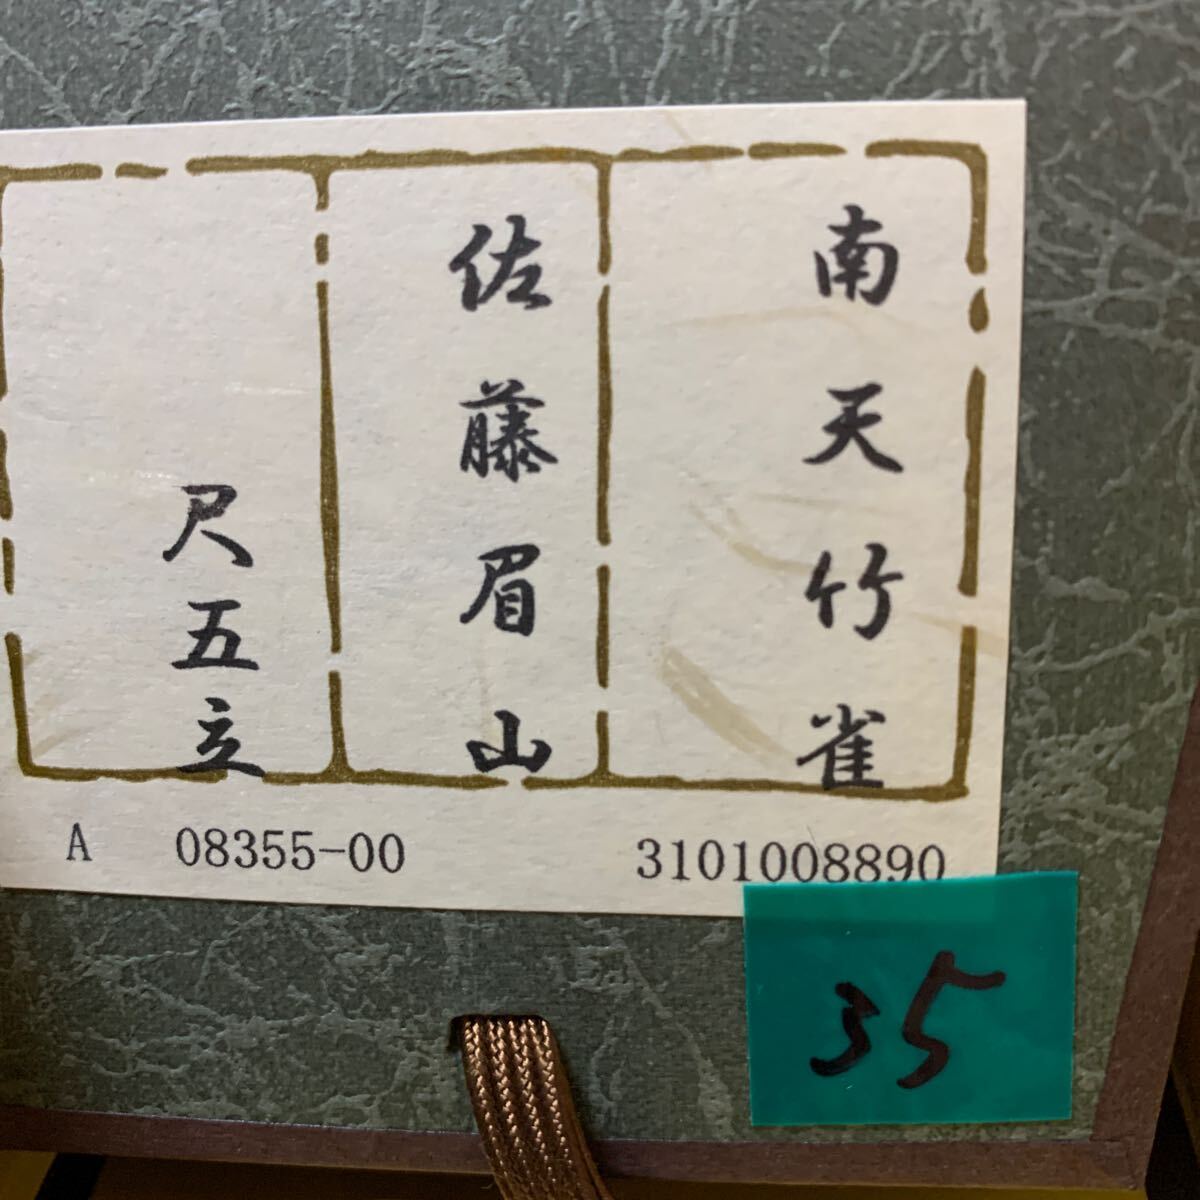 南天竹雀
佐藤眉山
尺五立
A 08355-00 3101008890
35